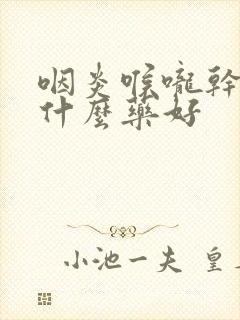 咽炎喉嚨幹
什麼藥好
小池一夫 皇